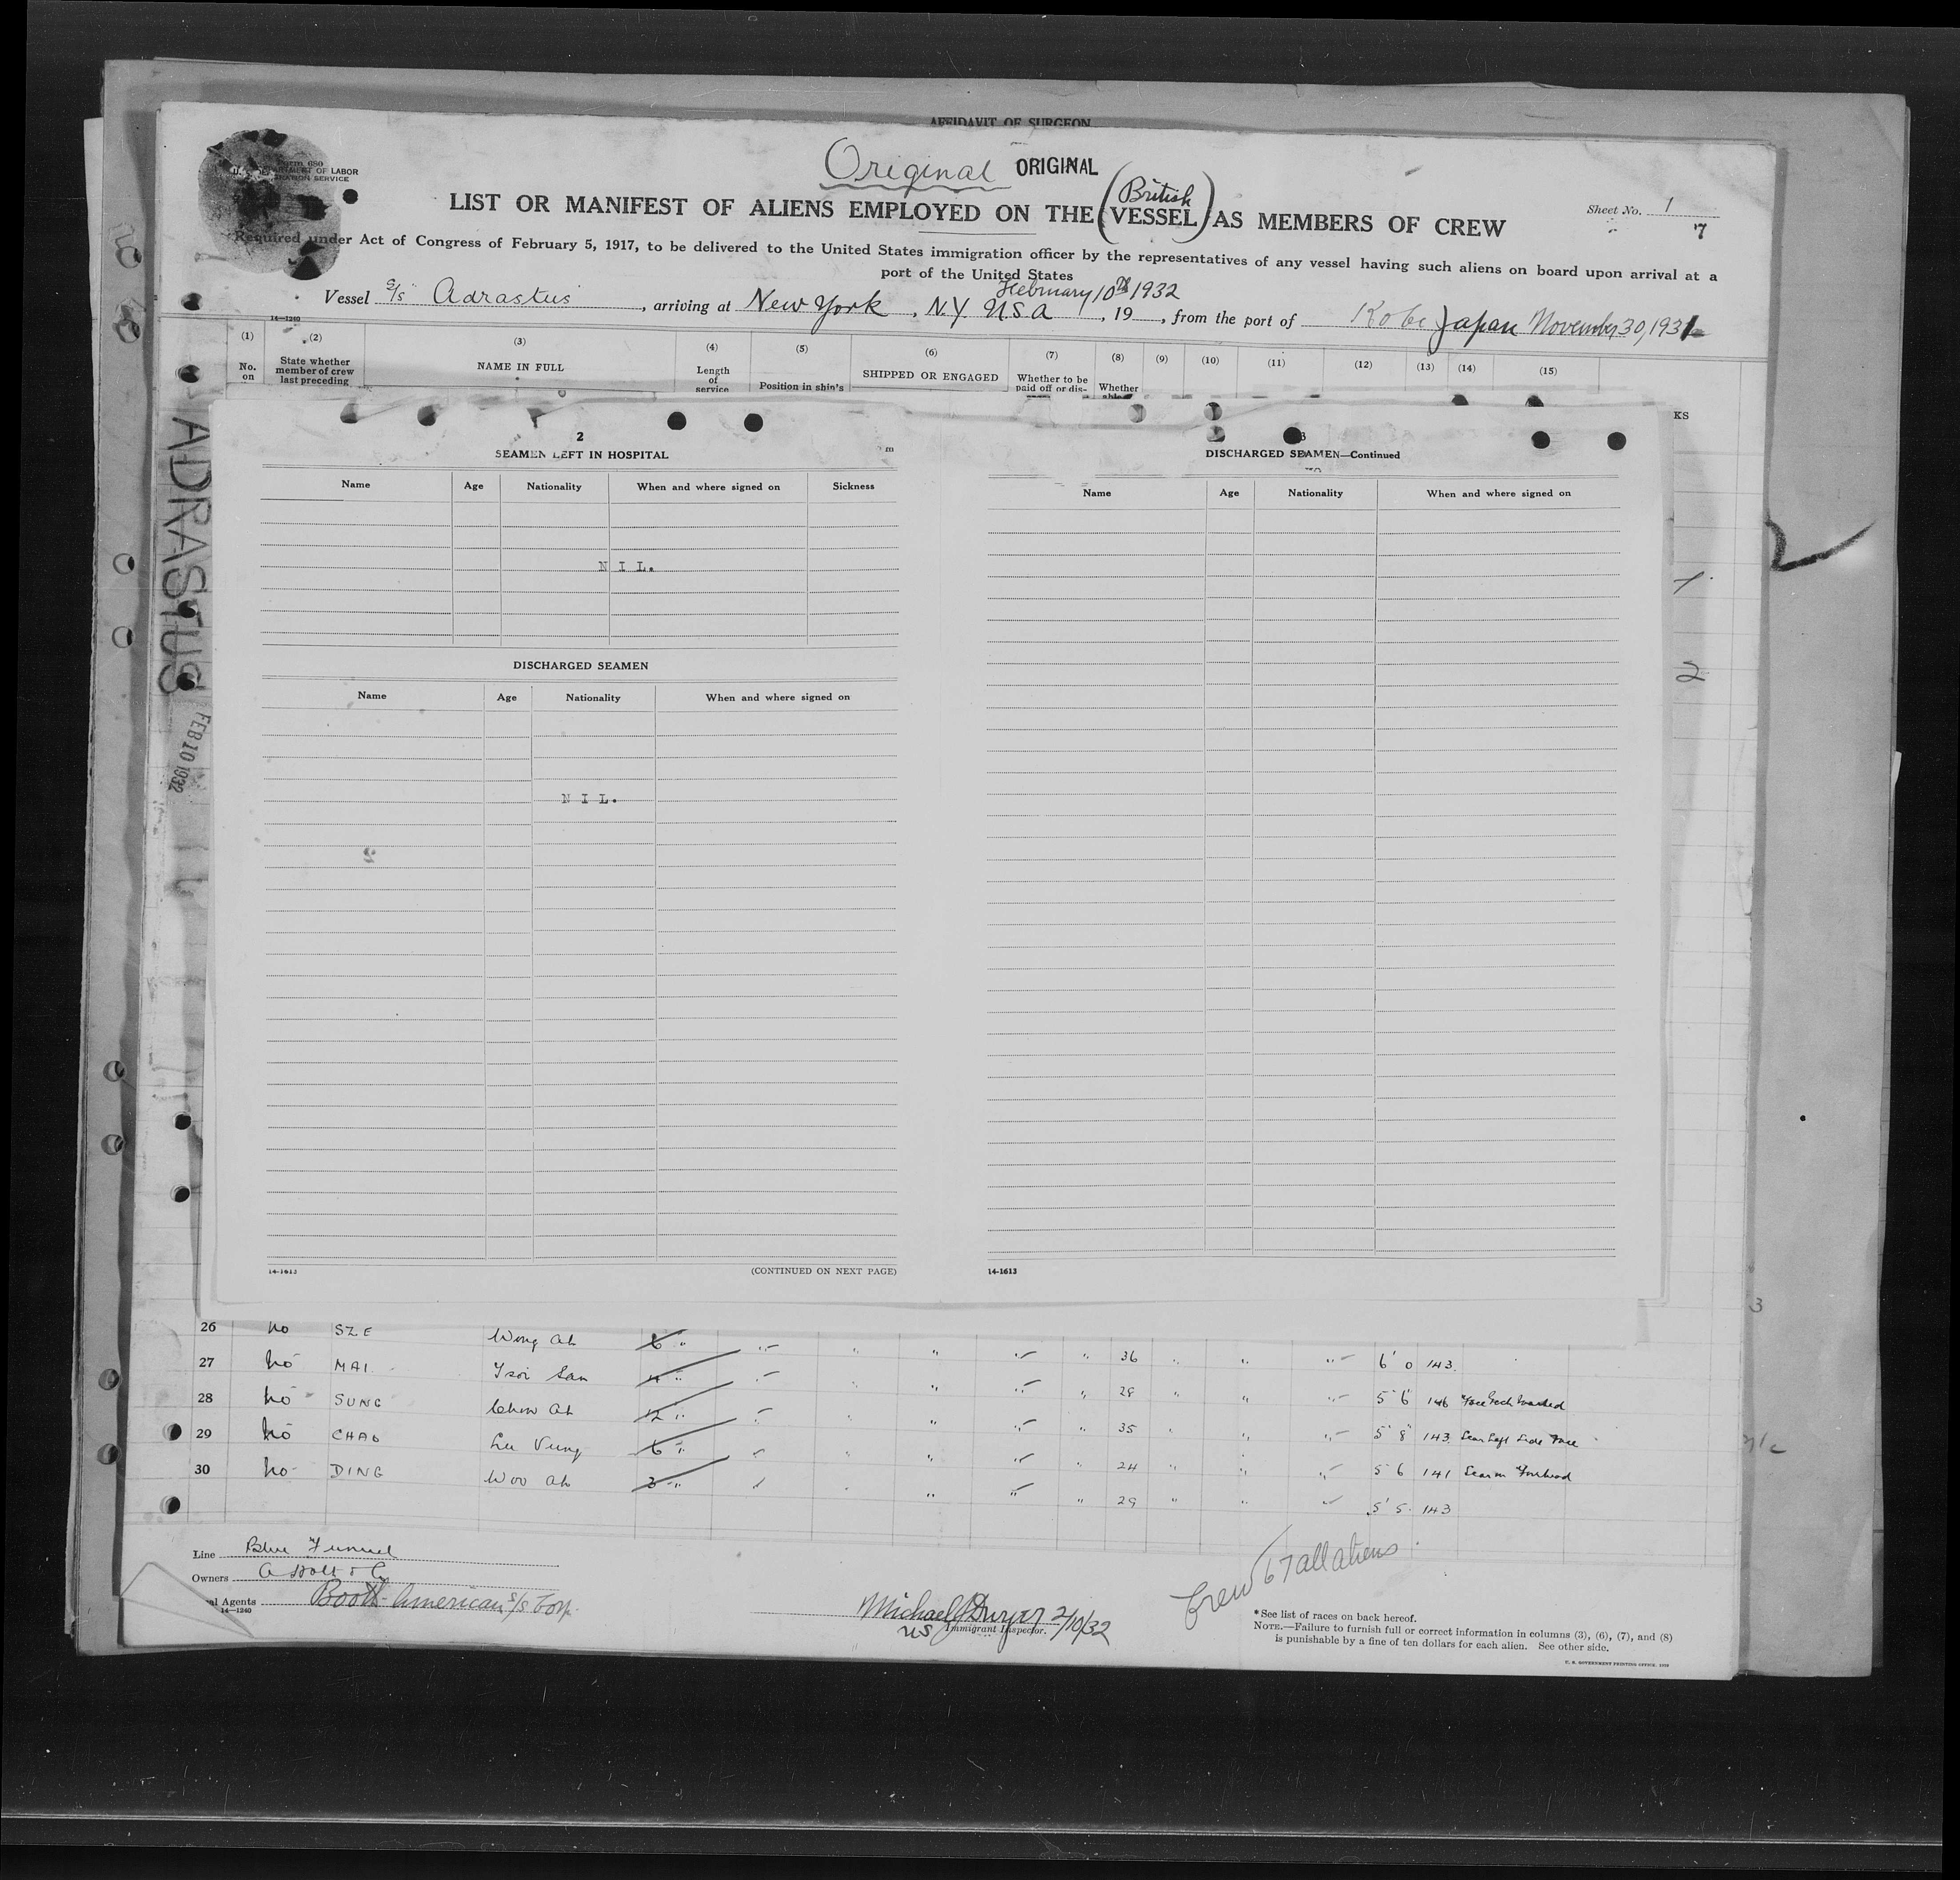 AFFIDAVIT OF SURGEON
Original ORIGINAL
Form 680
U. S. DEPARTMENT OF LABOR
IMMIGRATION SERVICE
British
LIST OR MANIFEST OF ALIENS EMPLOYED ON THE (VESSEL) AS MEMBERS OF CREW
Sheet No. 1
7
Required under Act of Congress of February 5, 1917, to be delivered to the United States immigration officer by the representatives of any vessel having such aliens on board upon arrival at a
port of the United States
Vessel S/S Adrastus, arriving at New York, N.Y. U.S.A February 10th 1932, 19, from the port of Kobe Japan November 30, 1931
14—1240
(1) (2) (3) (4) (5) (6) (7) (8) (9) (10) (11) (12) (13) (14) (15)
No. on
State whether member of crew last preceding
NAME IN FULL
Length of service
Position in ship's
SHIPPED OR ENGAGED
Whether to be paid off or dis-
Whether able
KS
ADRASTUS
FEB 10 1932
2
SEAMEN LEFT IN HOSPITAL
Name Age Nationality When and where signed on Sickness
N I L.
DISCHARGED SEAMEN
Name Age Nationality When and where signed on
N I L.
14-1613 (CONTINUED ON NEXT PAGE)
3
DISCHARGED SEAMEN—Continued
Name Age Nationality When and where signed on
14-1613
1
2
3
26 no SZE Wong ah 6 " " " " " " 36 " " " 6' 0 143
27 no MAI Tsoi San " " " " " " 28 " " 5' 6 146 Face Pock marked
28 no SUNG Chow ah 12 " " " " " " 35 " " " 5' 8 143 Scar Left Side Face
29 no CHAO Lu Vung 6 " " " " " " 24 " " " 5 6 141 Scar on Forehead
30 no DING Woo ah 3 " " " " " " 29 " " " 5' 5 143
Line Blue Funnel
Owners A Holt & Co
Local Agents Booth American S/S Corp.
14—1240
Michael J Dwyer 2/10/32
US Immigrant Inspector.
Crew 67 all aliens
* See list of races on back hereof.
NOTE.—Failure to furnish full or correct information in columns (3), (6), (7), and (8)
is punishable by a fine of ten dollars for each alien. See other side.
U. S. GOVERNMENT PRINTING OFFICE